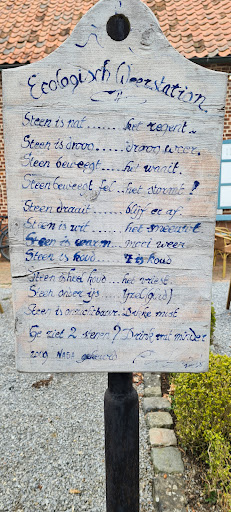 Ecologisch Weerstation
Steen is nat........het regent..
Steen is droog......droog weer.
Steen beweegt....het waait.
Steen beweegt fel..het stormt!
Steen draait.......blijf er af.
Steen is wit.......het sneeuwt
Steen is warm...mooi weer
Steen is koud......'t is koud
Steen is heel koud...het vriest
Steen onder ijs.....
Steen is onzichtbaar.Dikke mist
Ge ziet 2 stenen? Drink wat minder
NASA gekeurd